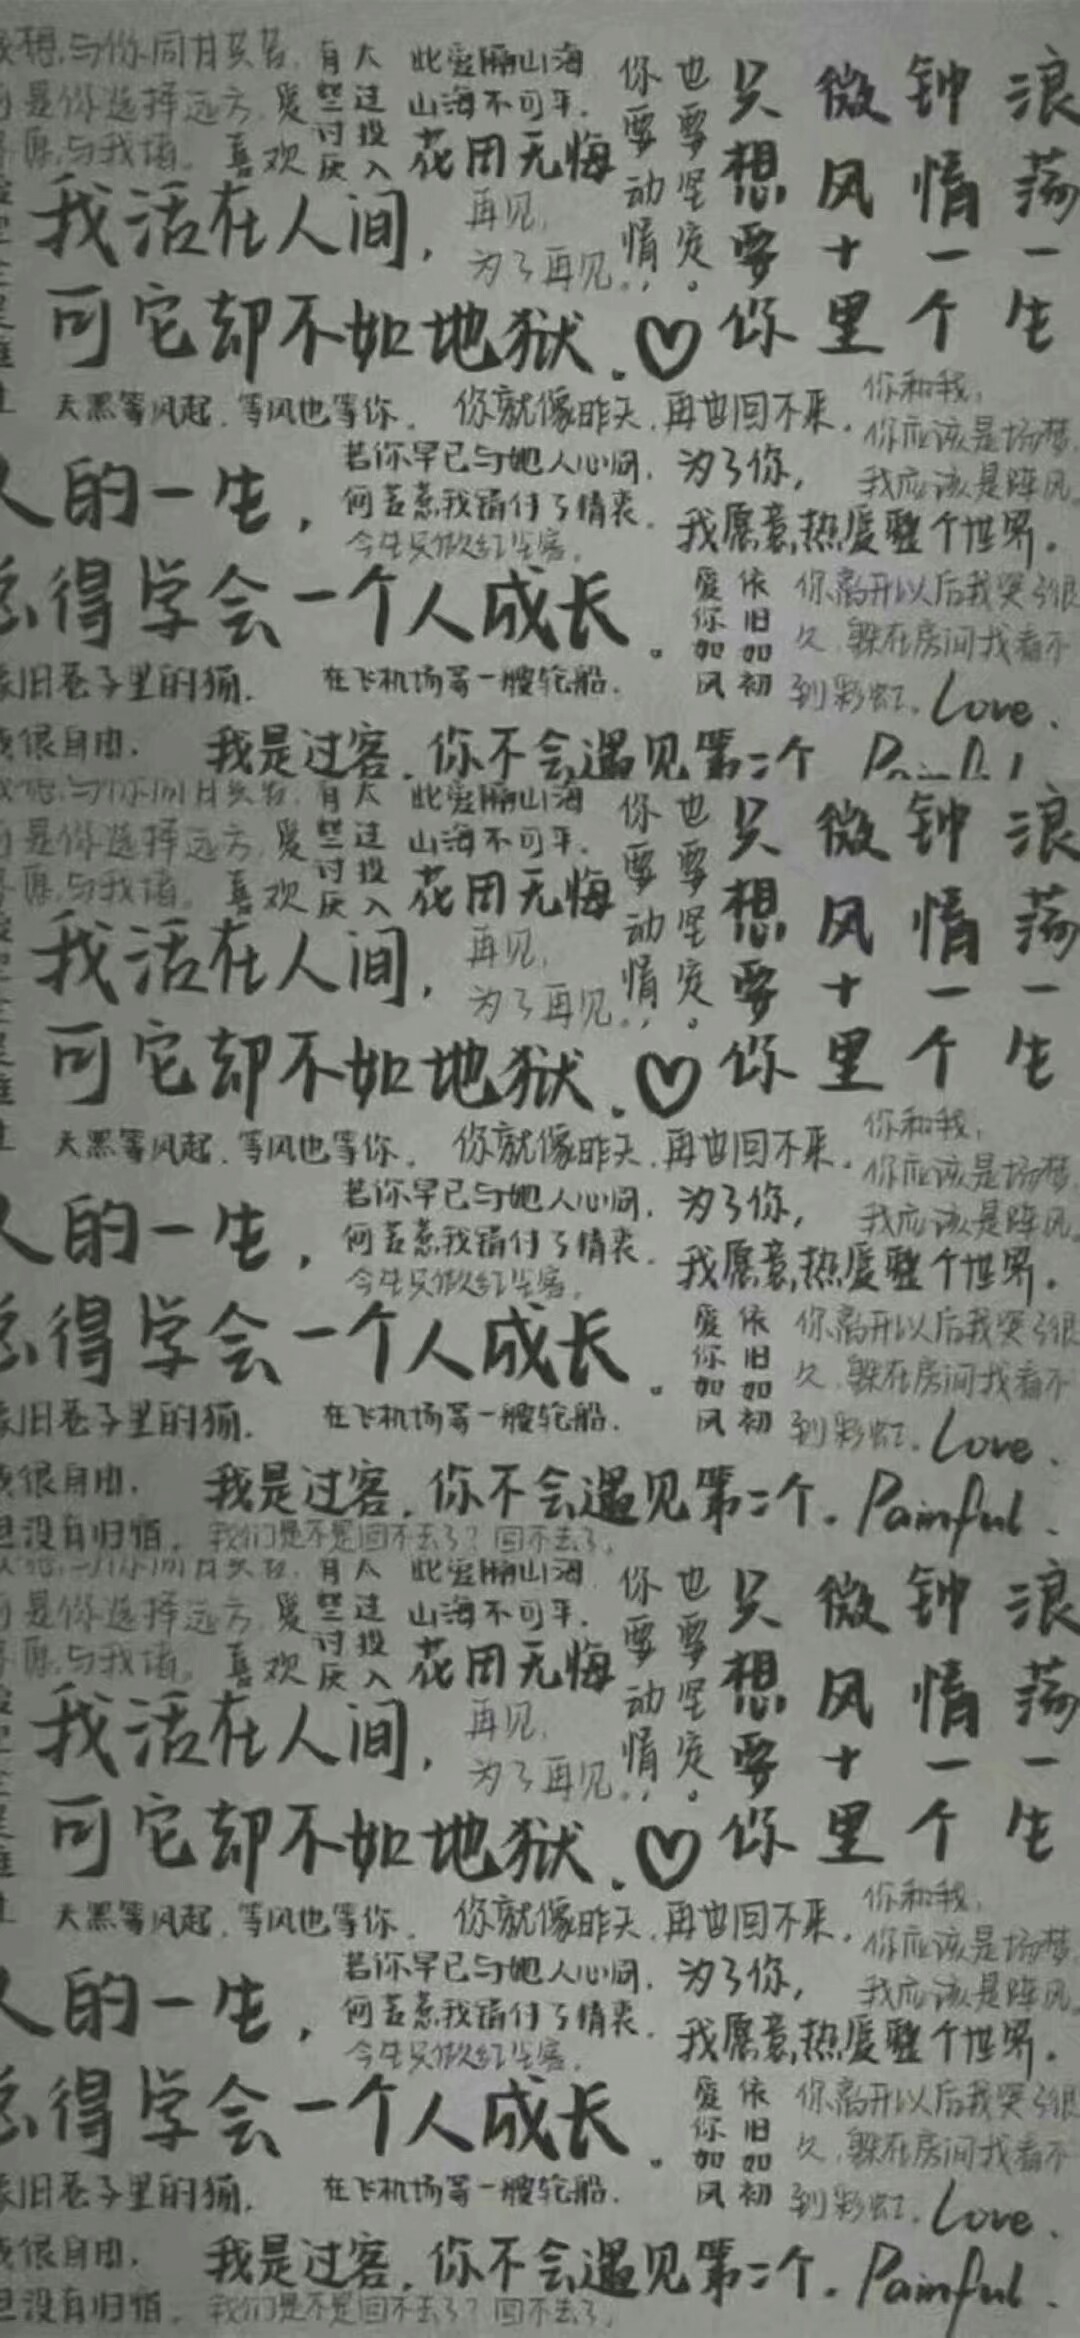 与你同甘共苦.
是你选择远方,
愿,与我猜。
爱
喜欢
有些讨厌
太过投入
此爱隔山海
山海不可平.
花用无悔
你要动情,
也要坚定。
只想要你
微风十里
钟情一个
浪荡一生
我活在人间,
再见,
为了再见..
可它却不如地狱.♡
天黑等风起,等风也等你.
你就像昨天,再也回不来.
你和我,
你应该是场梦,
我应该是阵风。
人的一生,
若你早已与她人心同,
何苦惹我错付了情衷.
今生只做红尘客.
为了你,
我愿意热爱整个世界.
总得学会一个人成长.
爱你如风
依旧如初
你离开以后我哭了很
久,躲在房间找看不
到彩虹.
Love.
旧巷子里的猫.
在飞机场等一艘轮船.
很自由.
我是过客.你不会遇见第二个
与你同甘共苦.
是你选择远方,
愿,与我猜。
爱
喜欢
有些讨厌
太过投入
此爱隔山海
山海不可平.
花用无悔
你要动情,
也要坚定。
只想要你
微风十里
钟情一个
浪荡一生
我活在人间,
再见,
为了再见..
可它却不如地狱.♡
天黑等风起,等风也等你.
你就像昨天,再也回不来.
你和我,
你应该是场梦,
我应该是阵风。
人的一生,
若你早已与她人心同,
何苦惹我错付了情衷.
今生只做红尘客.
为了你,
我愿意热爱整个世界.
总得学会一个人成长.
爱你如风
依旧如初
你离开以后我哭了很
久,躲在房间找看不
到彩虹.
Love.
旧巷子里的猫.
在飞机场等一艘轮船.
很自由.
我是过客.你不会遇见第二个.
Painful.
没有归宿.
我们是不是回不去了?回不去了.
与你同甘共苦.
是你选择远方,
愿,与我猜。
爱
喜欢
有些讨厌
太过投入
此爱隔山海
山海不可平.
花用无悔
你要动情,
也要坚定。
只想要你
微风十里
钟情一个
浪荡一生
我活在人间,
再见,
为了再见..
可它却不如地狱.♡
天黑等风起,等风也等你.
你就像昨天,再也回不来.
你和我,
你应该是场梦,
我应该是阵风。
人的一生,
若你早已与她人心同,
何苦惹我错付了情衷.
今生只做红尘客.
为了你,
我愿意热爱整个世界.
总得学会一个人成长.
爱你如风
依旧如初
你离开以后我哭了很
久,躲在房间找看不
到彩虹.
Love.
旧巷子里的猫.
在飞机场等一艘轮船.
很自由.
我是过客.你不会遇见第二个.
Painful.
没有归宿.
我们是不是回不去了?回不去了.